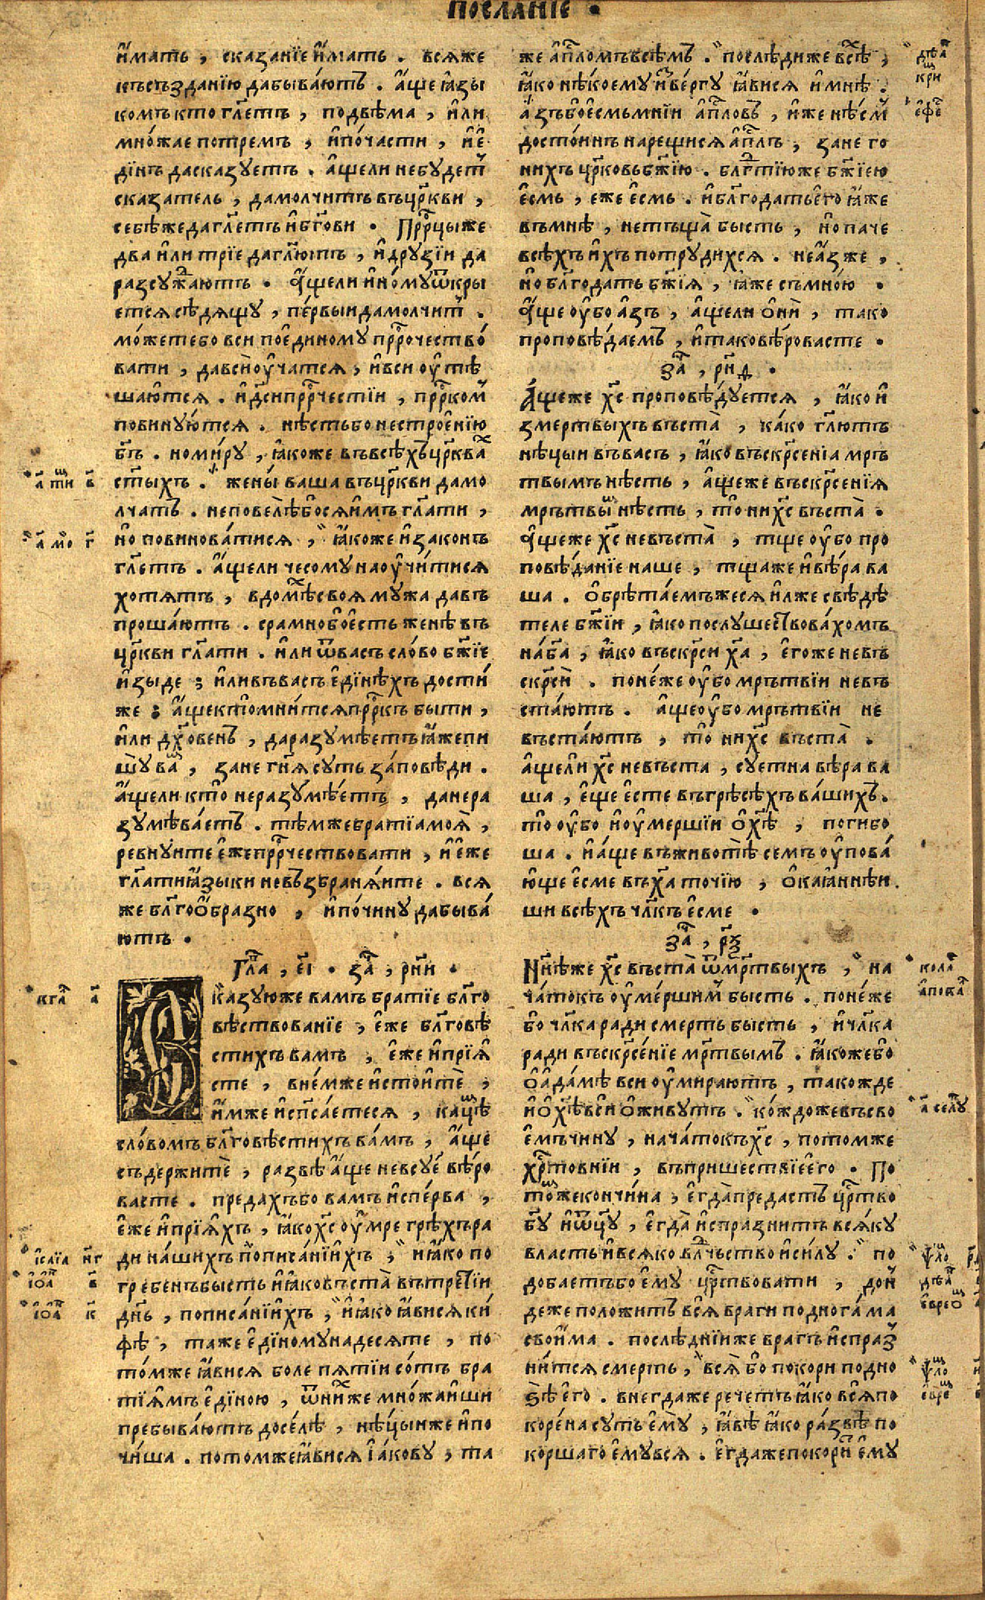 ПОСЛАНІЕ .
и҆́мать , сказанїе и҆́мать . вс̑ѧже
къ създанїю да быва́ютъ . а҆́ще ꙗ҆зы
комъ кто гл҃етъ , по двѣма , и҆лѝ
мно́жае по тремъ , и҆ по́ части , и҆ є҆
ди́нъ да сказуетъ . а҆́щели небу́детⸯ
сказатель , да молчи́тъ въ цр҃кви ,
себѣже да гл҃етъ и҆ бг҃ови . Прⷪ҇рцы же
два и҆лѝ трїе да гл҃ютъ , и҆ друзїи да
разсужⷣаютъ . а҆́щели и҆но́му ѿкры
ется сѣдѧщу , пе́рвыи да молчитⸯ .
мо́жете бо вси по є҆диному прⷪ҇рочество́
вати , да всѝ оу҆ча́тся , и҆ вси оу҆тѣ
ша́ются . и҆ дс҃и прⷪ҇рчестїи , прⷪ҇ркомⸯ
повину́ются . нѣсть бо нестрое́нїю
бг҃ъ . но ми́ру , ꙗ҆́коже въ всѣхъ цр҃квахⷯ
ст҃ыхъ . жены̀ ваша въ цр҃кви да мо
лча́тъ . не повелѣ́ бося и҆́мъ гл҃ати ,
но̀ повинова́тися , ꙗ҆́коже и҆ зако́нъ
гл҃етъ . а҆́щели чесому нао҆учи́тися
хотя́тъ , в дому̀ своѧ мужа да въ
проша́ютъ . срамно бо є҆́сть женѣ въ
цр҃кви гл҃ати . и҆лѝ ѿ васъ сло́во бж҃їе
и҆зыде ; и҆лѝ въ ва́съ є҆ди́нѣхъ дости́
же ; а҆́ще кто̀ мни́тся прⷪ҇ркъ бы́ти ,
и҆лѝ дх҃о́венъ , да разумѣ́етъ ꙗ҆́же пи
шу̀ ва́мⸯ , зане гн҃я суть за́повѣди .
а҆́щели кто̀ неразумѣ́етъ , да нера
зумѣва́етъ . тѣмже братїа моѧ̀ ,
ревну́ите є҆́же прⷪ҇рчествовати , и҆ є҆́же
гл҃ати ꙗ҆зы́ки невъзбраня́ите . вся
же бл҃гоо҆́бразно , и҆ по́ чину да быва́
ютъ .
Гла҃ , є҃і . заⷱ҇ , рн҃и .
Сказую же вамъ братїе бл҃го
вѣствованїе , є҆́же бл҃говѣ
стихъ вамъ , є҆́же и҆ прїѧ́
сте , в не́мже и҆ стоитѐ ,
и҆́мже и҆ сп҃са́етеся , кацѣⷨ
сло́вомъ бл҃говѣстихъ ва́мъ , а҆́ще
съдержитѐ , развѣ а҆́ще невсуе вѣ́ро
васте . предахъ бо вамъ и҆спе́рва ,
є҆́же и҆ прїѧ́хъ , ꙗ҆́ко хс҃ оу҆́мре грѣхъ ра
ди нашихъ по писанїи҆хъ , и҆ ꙗ҆́ко по
гребенъ бысть и҆ ꙗ҆́ко въста̀ въ тре́тїи
дн҃ь , по писанїи҆хъ , и҆ ꙗ҆́ко ꙗ҆ви́ся ки
фѣ , таже є҆диному на десяте , по
то́мже ꙗ҆вися боле пяти́ со́тъ бра
тїѧмъ є҆ди́ною , ѿ ни́хⸯже мно́жаи҆ши
пребыва́ютъ доселѣ̀ , нѣ́цыи же и҆ по
чи́ша . пото́мже ꙗ҆ви́ся і҆а́кову , та
же а҆пⷭ҇ломъ всѣ́мъ . послѣди же всѣⷯ ,
ꙗ҆ко нѣ́коему и҆зве́ргу ꙗ҆ви́ся и҆ мнѣ̀ .
а҆́зъ бо є҆́смь мнїи а҆пⷭ҇ловъ , и҆́же нѣ́смⸯ
досто́инъ нарещи́ся а҆пⷭ҇лъ , зане го
нихъ цр҃ковь бж҃їю . бл҃гдⷣтїю же бж҃їею
є҆́смь , еже є҆́смь . и҆ бл҃года́ть є҆го̀ ꙗ҆́же
въ мнѣ̀ , нетъща̀ бысть , но̀ паче
всѣхъ и҆́хъ потруди́хся . не а҆́зже ,
но̀ бл҃года́ть бж҃їя , ꙗ҆́же съ мною .
а҆́ще оу҆́бо а҆́зъ , а҆́щели ѻ҆нѝ , тако
проповѣ́даемъ , и҆ тако вѣ́ровасте .
заⷱ҇ , рн҃д .
А҆́щеже хс҃ проповѣ́дуется , ꙗ҆́ко и҆
змертвыхъ въста̀ , ка́ко гл҃ютъ
нѣ́цыи въ васъ , ꙗ҆́ко въскрⷭ҇сенїа мръ
твымъ нѣсть , а҆́щеже въскрⷭ҇сенїя
мръ́твыⷨ нѣсть , то̀ ни хс҃ въста̀ .
а҆́щеже хс҃ не въста̀ , тще оу҆́бо про
повѣ́данїе наше , тщаже и҆ вѣ́ра ва
ша . ѻ҆брѣта́емъжеся и҆ лже свѣдѣ́
теле бж҃їи , ꙗ҆́ко послушествова́хомъ
на б҃а , ꙗ҆́ко въскр҃сѝ х҃а , є҆го́же не въ
скр҃сѝ . поне́же оу҆́бо мръ́твїи не въ
ста́ютъ . а҆́ще оу҆́бо мръ́твїи не
въста́ютъ , то̀ ни хс҃ въста̀ .
а҆́щели хс҃ не въста̀ , суетна вѣ́ра ва
ша , є҆́ще є҆́сте въ грѣсѣ́хъ ва́шихъ .
то̀ оу҆́бо и҆ оу҆мершїи ѻ҆ хс҃ѣ , погибо
ша . и҆ а҆́ще въ животѣ̀ семъ оу҆пова́
юще є҆сме въ х҃а то́чїю , ѻ҆каꙗ҆ннѣи
ши всѣ́хъ чл҃къ є҆сме .
заⷱ҇ , рѯ҃
Нн҃ѣ же хс҃ въста̀ ѿ мр҃твыхъ , на
ча́токъ оу҆ме́ршимⸯ бысть . поне́же
бо чл҃ка ради смерть бысть , и҆ чл҃ка
ради въскрⷭ҇сенїе мр҃твымъ . ꙗ҆коже бо
ѻ҆ а҆да́мѣ вси оу҆мира́ютъ , такожде
и҆ ѻ҆ хс҃ѣ всѝ ѻ҆живу́тъ . ко́ждо же въ сво
є҆мъ чину , нача́токъ хс҃ , потомже
хрⷭ҇то́внїи , въ прише́ствїе є҆го̀ . По
то́мⸯже кончи́на , є҆гда̀ преда́стъ црⷭ҇тво
бг҃у и҆ ѿц҃у , є҆гда̀ и҆спразни́тъ вся́ку
власть и҆ вся́ко влⷣчьство и҆ си́лу . по
доба́етъ бо є҆му̀ црⷭ҇твовати , до́н
деже положи́тъ вся̀ враги под но́га ма
свои́ма . послѣ́днїи же врагъ и҆спразⸯ
ни́тся сме́рть , вся̀ бо покори под но
ѕѣ є҆го̀ . внегда́же рече́тъ ꙗ҆́ко вся по
коре́на суть є҆му̀ , ꙗ҆́вѣ ꙗ҆́ко ра́звѣ по
ко́ршаго є҆му вся . є҆гда́же покори́тⸯ є҆му